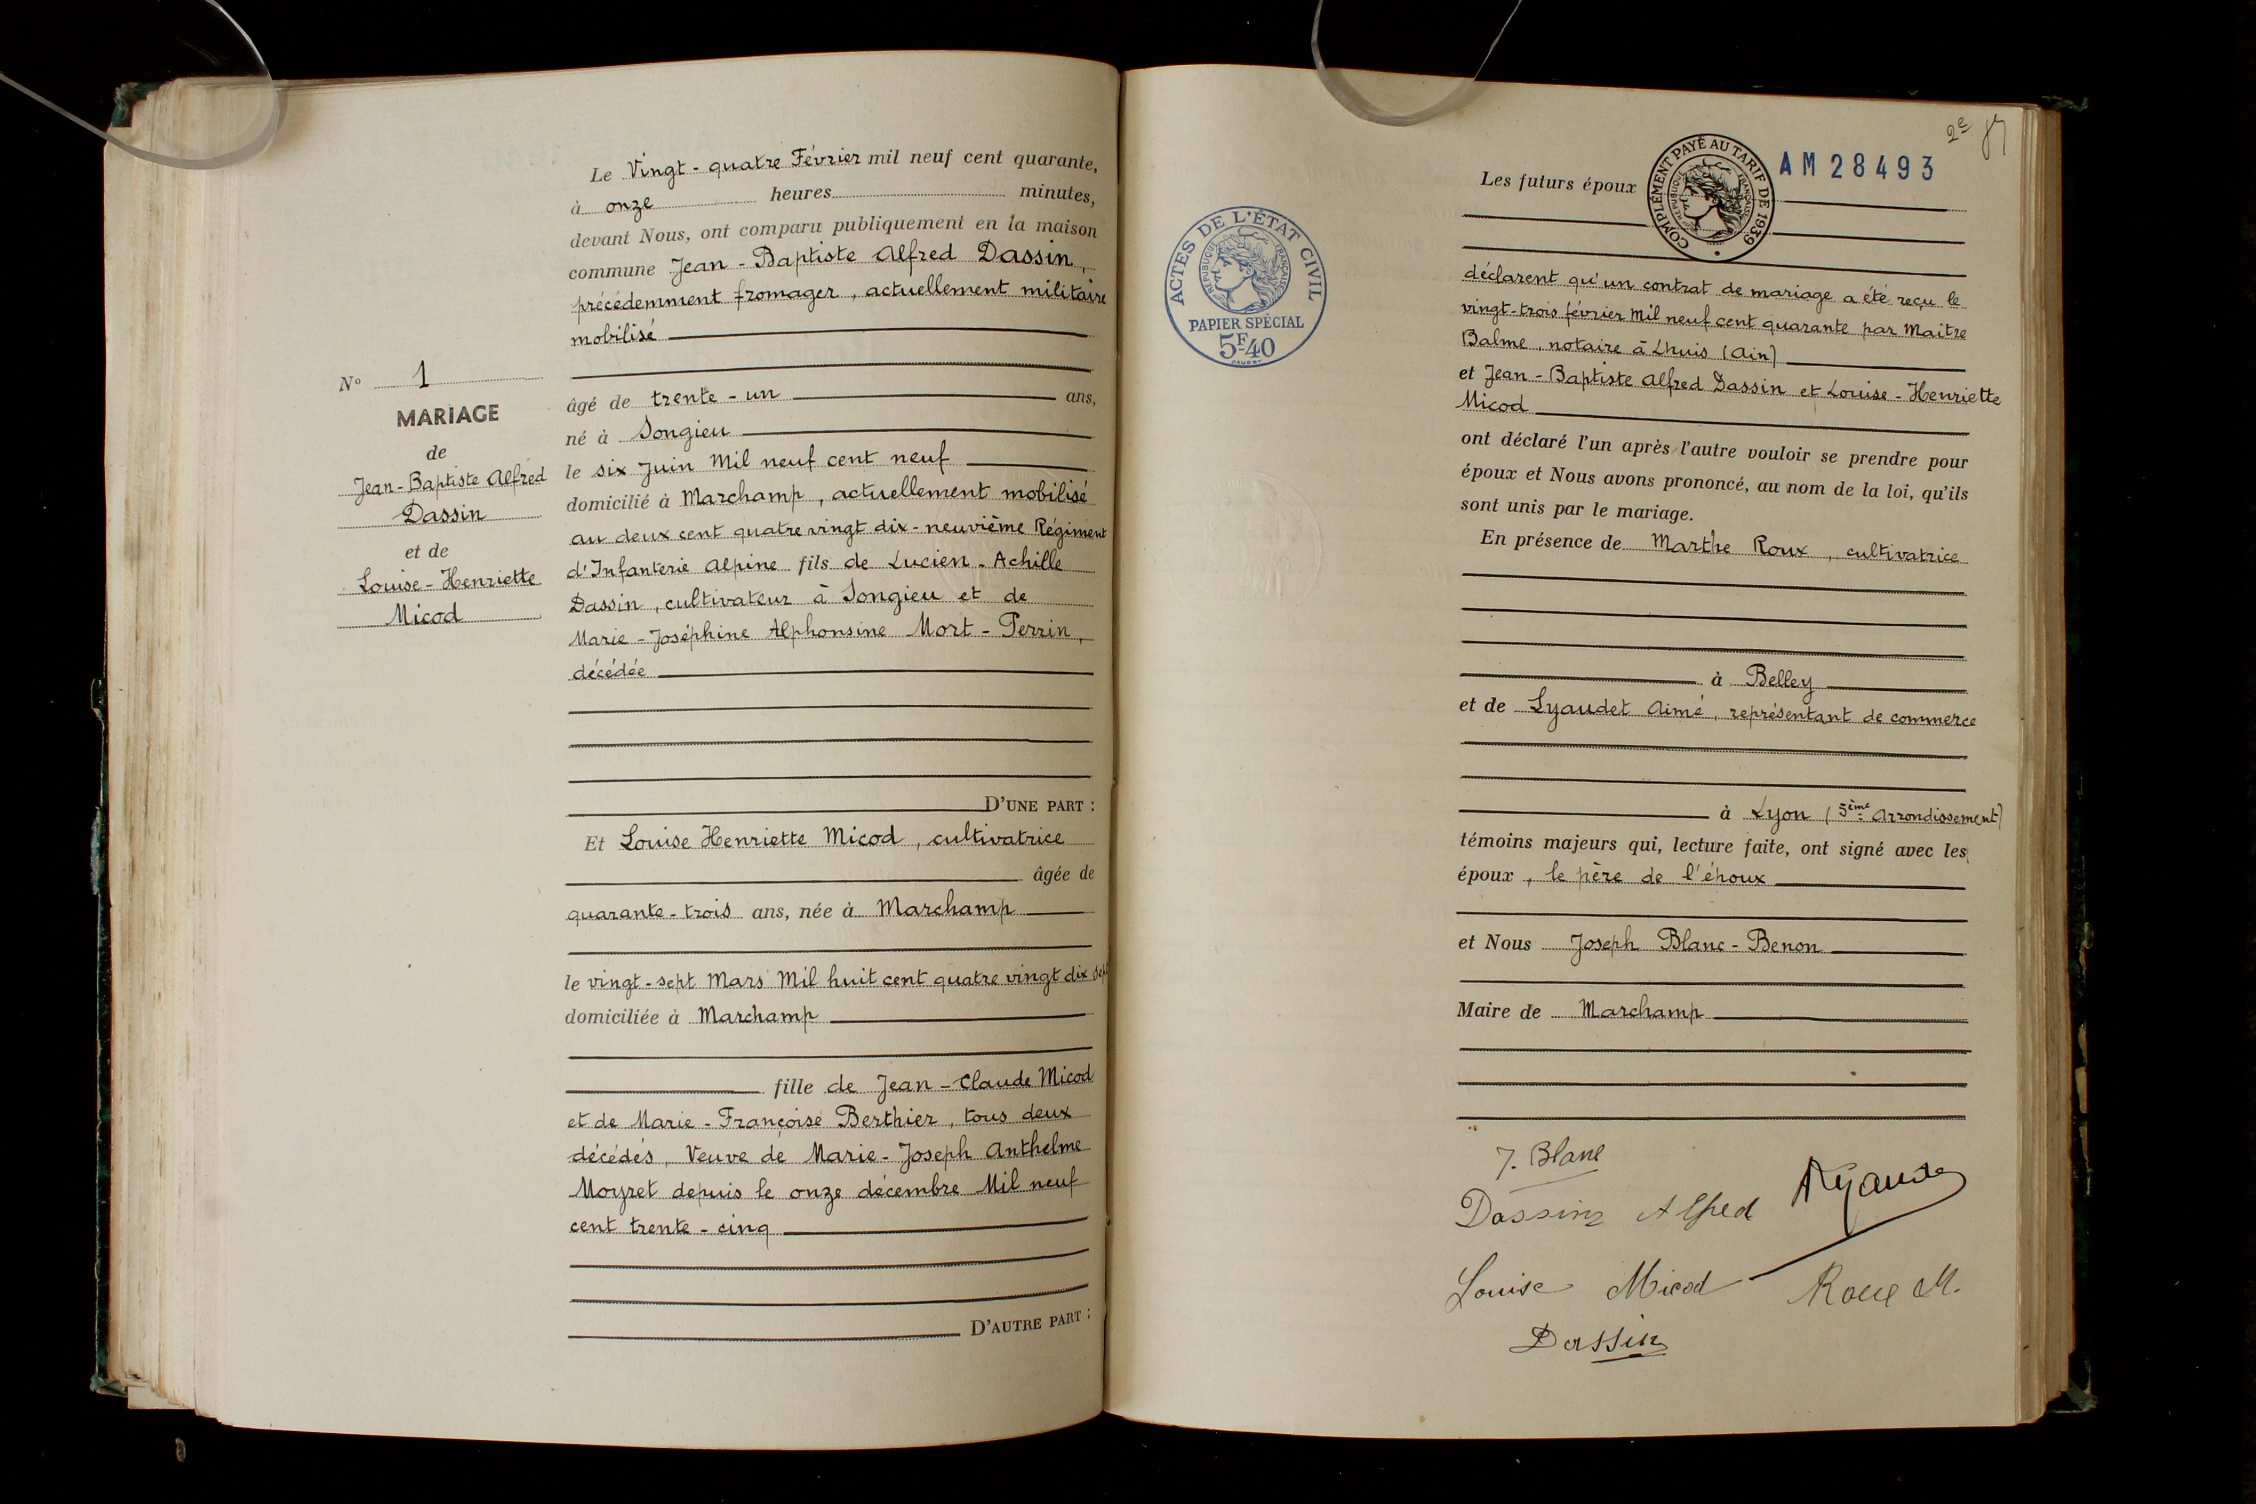 Nº 1
MARIAGE
de
Jean-Baptiste Alfred
Dassin
et de
Louise-Henriette
Micod
Le Vingt-quatre Février mil neuf cent quarante,
à onze heures minutes,
devant Nous, ont comparu publiquement en la maison
commune Jean-Baptiste Alfred Dassin,
précédemment fromager, actuellement militaire
mobilisé
âgé de trente-un ans,
né à Songieu
le six Juin Mil neuf cent neuf
domicilié à Marchamp, actuellement mobilisé
au deux cent quatre vingt dix-neuvième Régiment
d'Infanterie Alpine fils de Lucien-Achille
Dassin, cultivateur à Songieu et de
Marie-Joséphine Alphonsine Mort-Perrin,
décédée
D'UNE PART :
Et Louise Henriette Micod, cultivatrice
âgée de
quarante-trois ans, née à Marchamp
le vingt-sept Mars Mil huit cent quatre vingt dix sept
domiciliée à Marchamp
fille de Jean-Claude Micod
et de Marie-Françoise Berthier, tous deux
décédés, Veuve de Marie-Joseph Anthelme
Moyret depuis le onze décembre Mil neuf
cent trente-cinq
D'AUTRE PART :
ACTES DE L'ÉTAT CIVIL
RÉPUBLIQUE FRANÇAISE
PAPIER SPÉCIAL
5F40
2e
COMPLÉMENT PAYÉ AU TARIF DE 1939
RÉPUBLIQUE FRANÇAISE
AM 28493
Les futurs époux
déclarent qu'un contrat de mariage a été reçu le
vingt-trois février Mil neuf cent quarante par Maitre
Balme, notaire à Lhuis (Ain)
et Jean-Baptiste Alfred Dassin et Louise-Henriette
Micod
ont déclaré l'un après l'autre vouloir se prendre pour
époux et Nous avons prononcé, au nom de la loi, qu'ils
sont unis par le mariage.
En présence de Marthe Roux, cultivatrice
à Belley
et de Lyaudet Aimé, représentant de commerce
à Lyon (5ème Arrondissement)
témoins majeurs qui, lecture faite, ont signé avec les
époux, le père de l'époux
et Nous Joseph Blanc-Benon
Maire de Marchamp
J. Blanc
Dassin Alfred
Louise Micod
Roux M.
Dassin